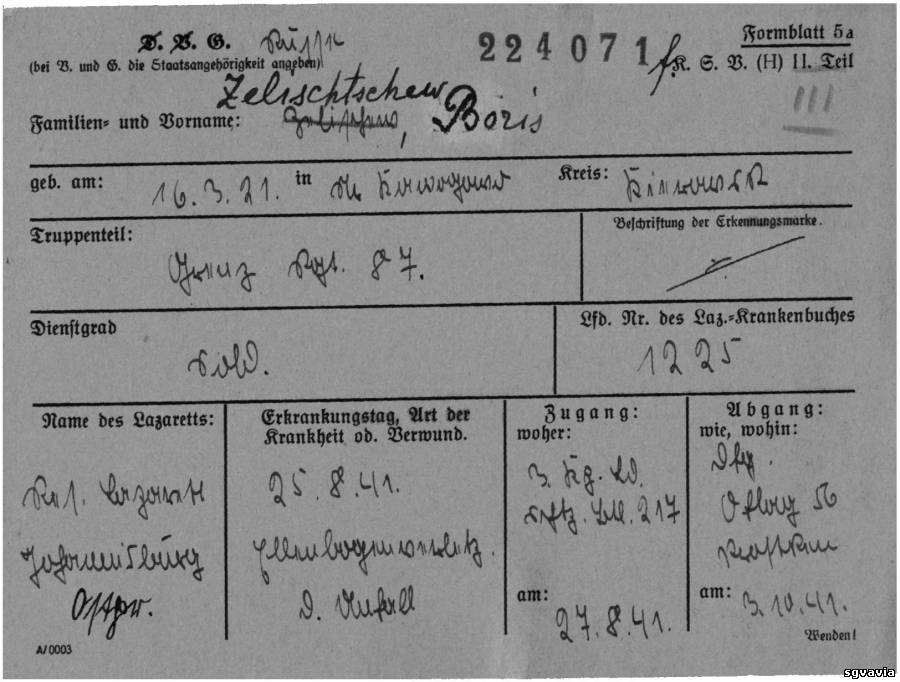 D. V. G. Russe 224071 Formblatt 5a
(bei V. und G. die Staatsangehörigkeit angeben) K. S. V. (H) II. Teil
Zelischtschew III
Familien- und Vorname: , Boris
geb. am: 16.3.21. in Kreis:
Truppenteil: Beschriftung der Erkennungsmarke.
Grenz Rgt. 87.
Dienstgrad Lfd. Nr. des Laz.-Krankenbuches
Sold. 1225
Name des Lazaretts: Erkrankungstag, Art der Krankheit od. Verwund. Zugang: woher: Abgang: wie, wohin:
Res. Lazarett 25.8.41. 3. Kg. Laz.
Johannisburg Ellenbogenverletz. 217 Oflag 56
Ostpr. d. Unfall Prostken
am: 27.8.41. am: 3.10.41.
Wenden!
A/0003
sgvavia